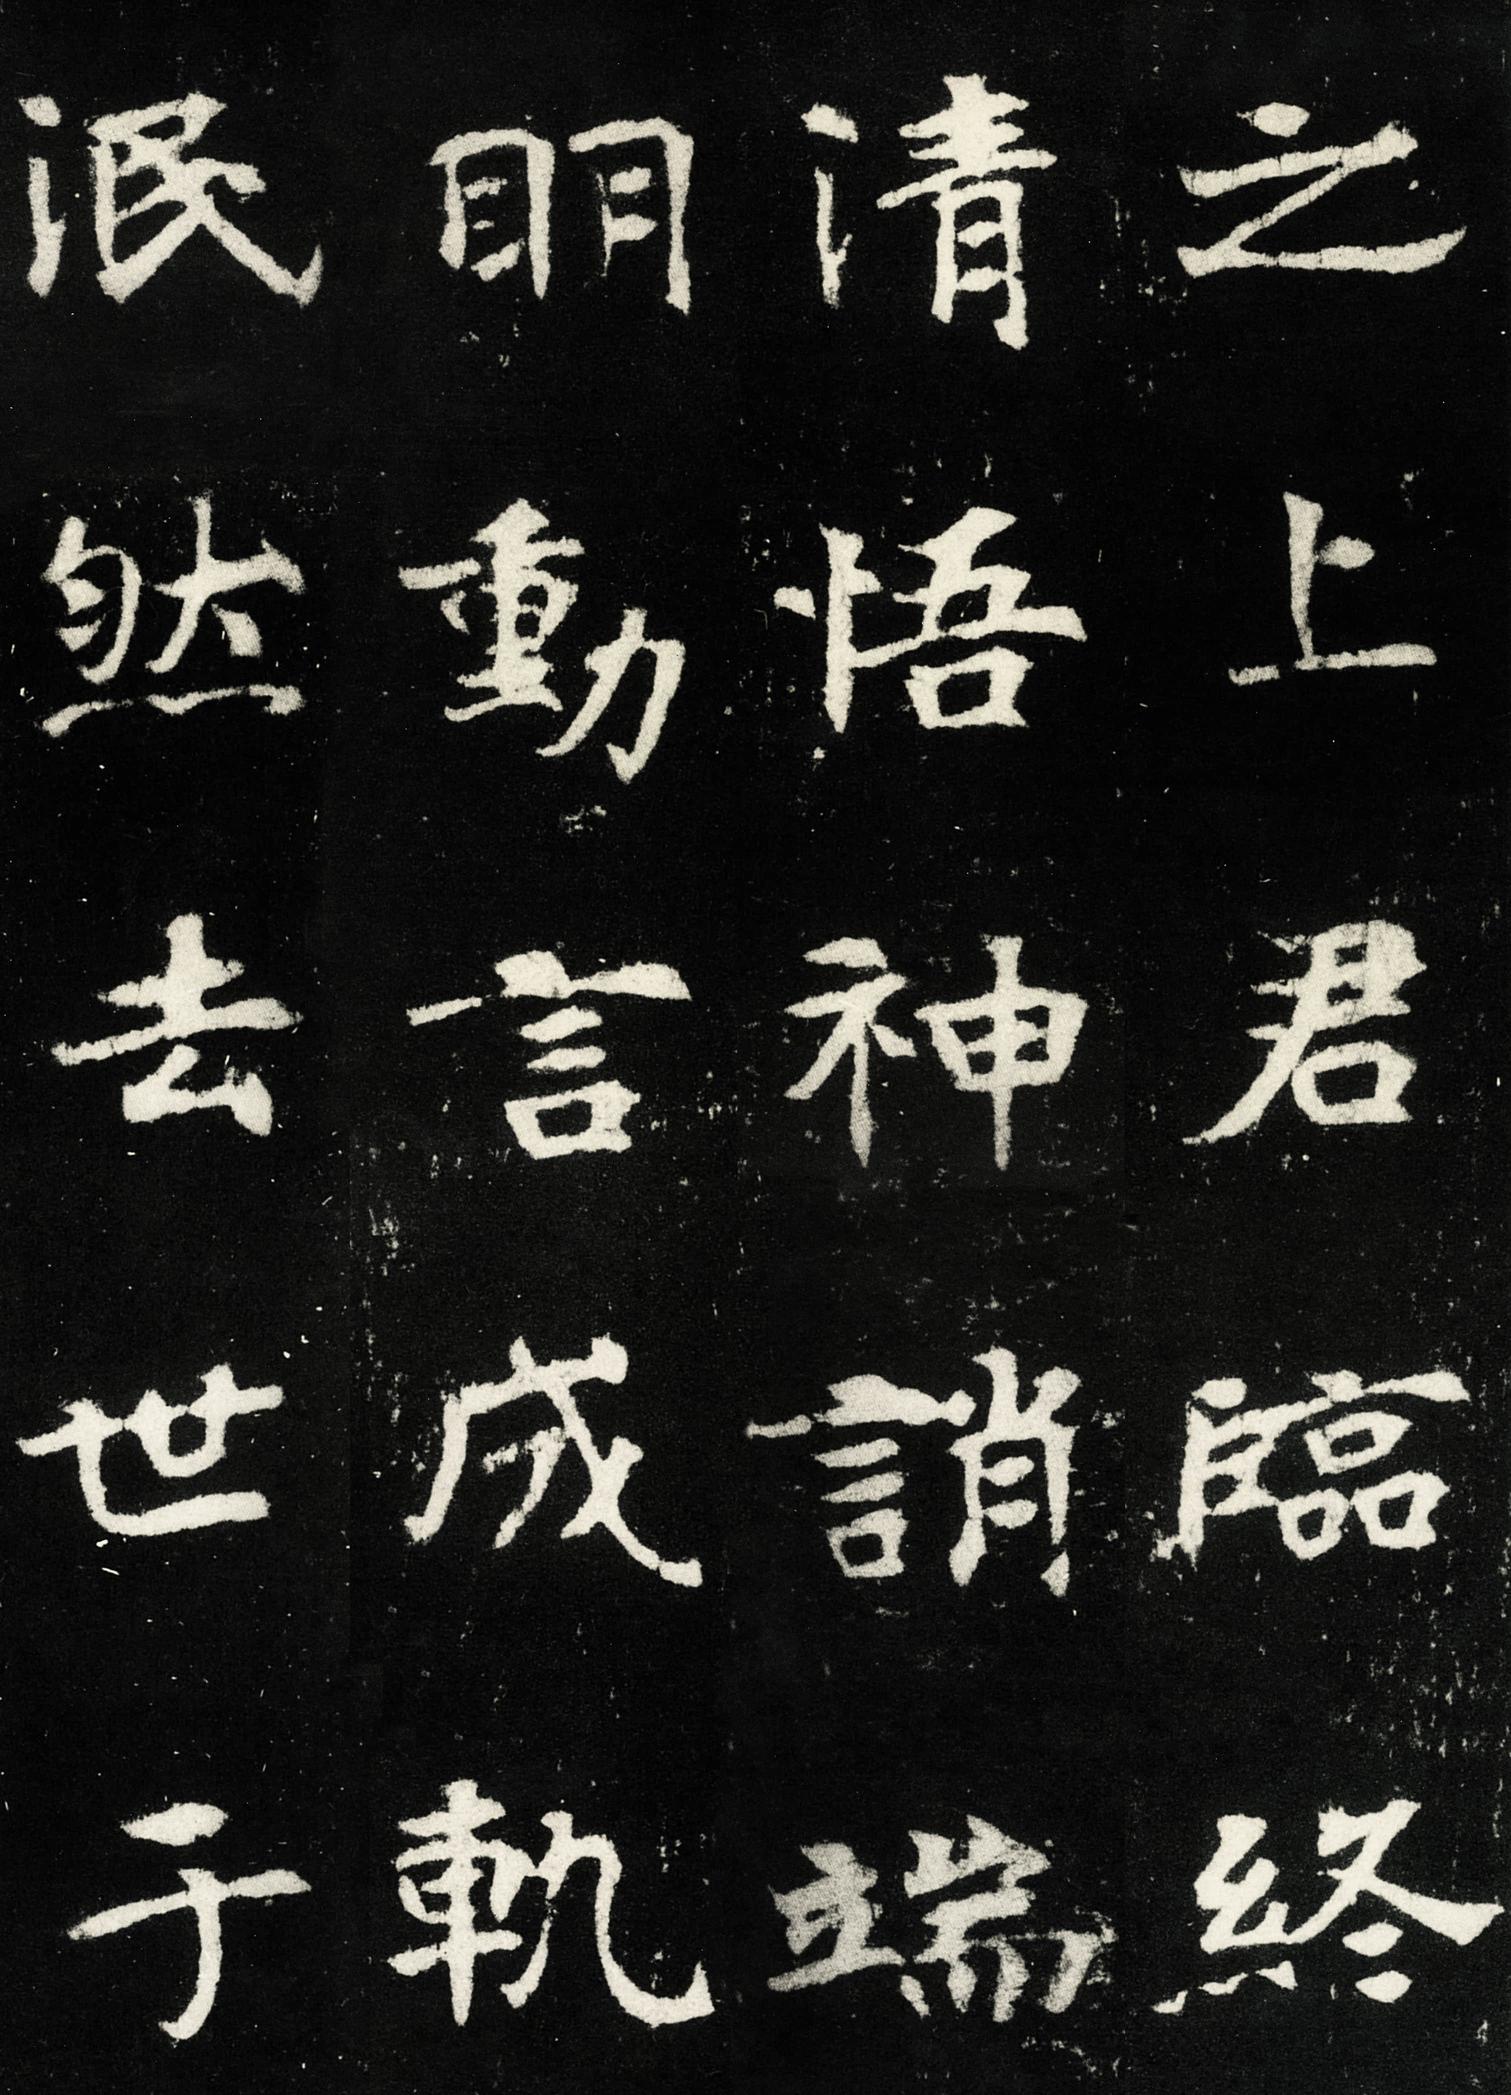 之上君臨終
清悟神誚端
明動言成軌
泯然去世于